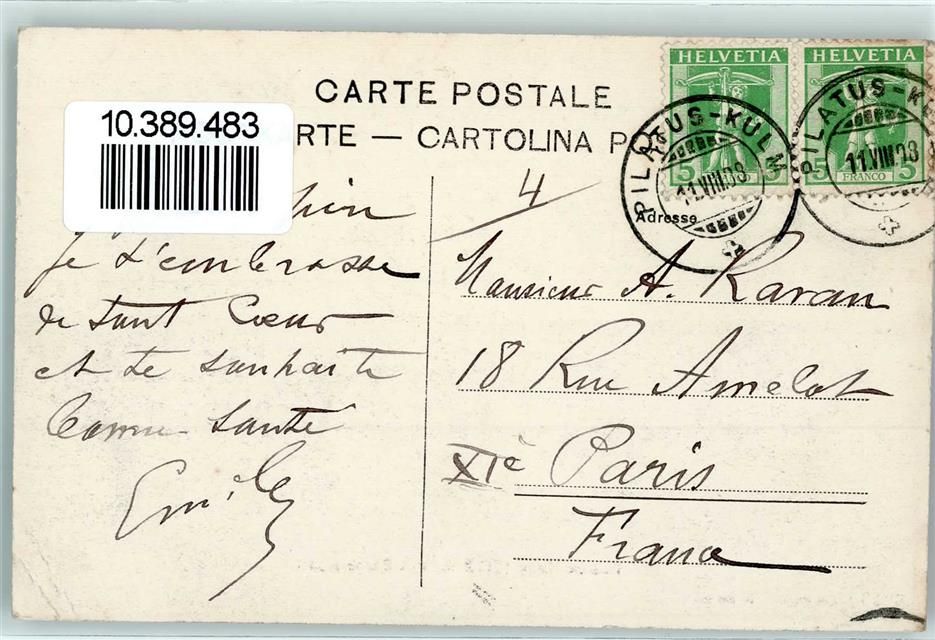 CARTE POSTALE
10.389.483
RTE — CARTOLINA P
HELVETIA
HELVETIA
5 FRANCO 5
5 FRANCO 5
PILATUS-KULM
11.VIII.08
PILATUS-KULM
11.VIII.08
4
Adresse
Je t'embrasse
de tout Cœur
et te souhaite
bonne santé
Emile
Monsieur A. Ravan
18 Rue Amelot
XIè Paris
France